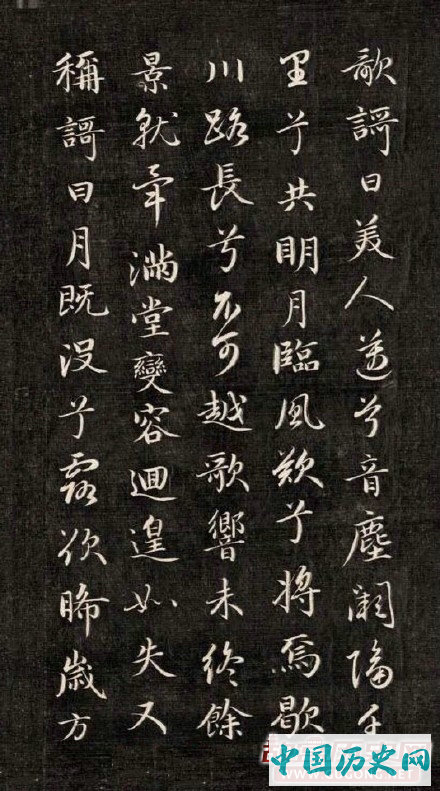 歌謌曰美人邁兮音塵闕隔千
里兮共眀月臨風歎兮將焉歇
川路長兮不可越歌響未終餘
景就畢滿堂變容迴遑如失又
稱謌曰月既沒兮露欲晞歲方
中国历史网